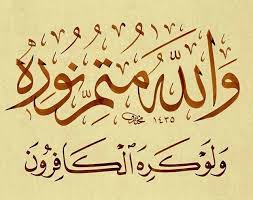 وَاللَّهُ مُتِمُّ نُورِهِ
١٤٣٥
وَلَوْ كَرِهَ الْكَافِرُونَ